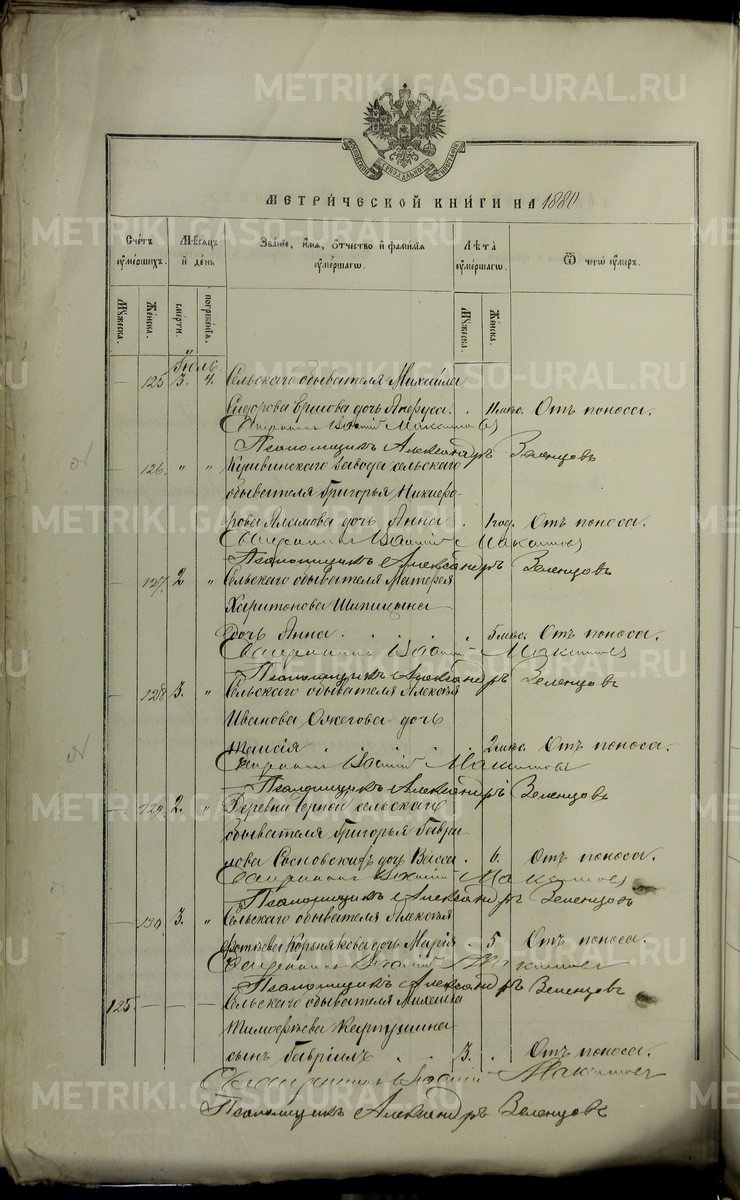 METRIKI.GASO-URAL.RU
МЕТРИЧЕСКОЙ КНИГИ НА 1880
Счетъ умершихъ.
Мѣсяцъ и день
Званіе, имя, отчество и фамилія умершаго.
Лѣта умершаго.
Ѿ чего умеръ.
Мужеска.
Женска.
смерти.
погребенія.
Мужеска.
Женска.
Іюль.
— 125 3. 4. Сельскаго обывателя Михаила
Сидорова Ершова дочь . 11 мѣс. Отъ поноса.
Священникъ Максимовъ
Псаломщикъ Александръ Зеленцовъ
— 126. " " Кушвинскаго завода сельскаго
обывателя Григорья Никифо-
рова дочь Анна . 1 год. Отъ поноса.
Священникъ Максимовъ
Псаломщикъ Александръ Зеленцовъ
— 127. 2 " Сельскаго обывателя Матфея
Харитонова Шипицына
дочь Анна . . . 5 мѣс. Отъ поноса.
Священникъ Максимовъ
Псаломщикъ Александръ Зеленцовъ
— 128 3. " Сельскаго обывателя Алексѣя
Иванова Ожегова дочь
Таисія . . . 2 мѣс. Отъ поноса.
Священникъ Максимовъ
Псаломщикъ Александръ Зеленцовъ
— 129. 2. " Деревни Черной сельскаго
обывателя Григорья Гаври-
лова дочь Васса . 6. Отъ поноса.
Священникъ Максимовъ
Псаломщикъ Александръ Зеленцовъ
— 130. 3. " Сельскаго обывателя Алексѣя
Фотѣева дочь Марія . 5 Отъ поноса.
Священникъ Максимовъ
Псаломщикъ Александръ Зеленцовъ
125 — — — Сельскаго обывателя Михаила
Тимофѣева Карпушина
сынъ Гавріилъ . . 3. . Отъ поноса.
Священникъ Максимовъ
Псаломщикъ Александръ Зеленцовъ